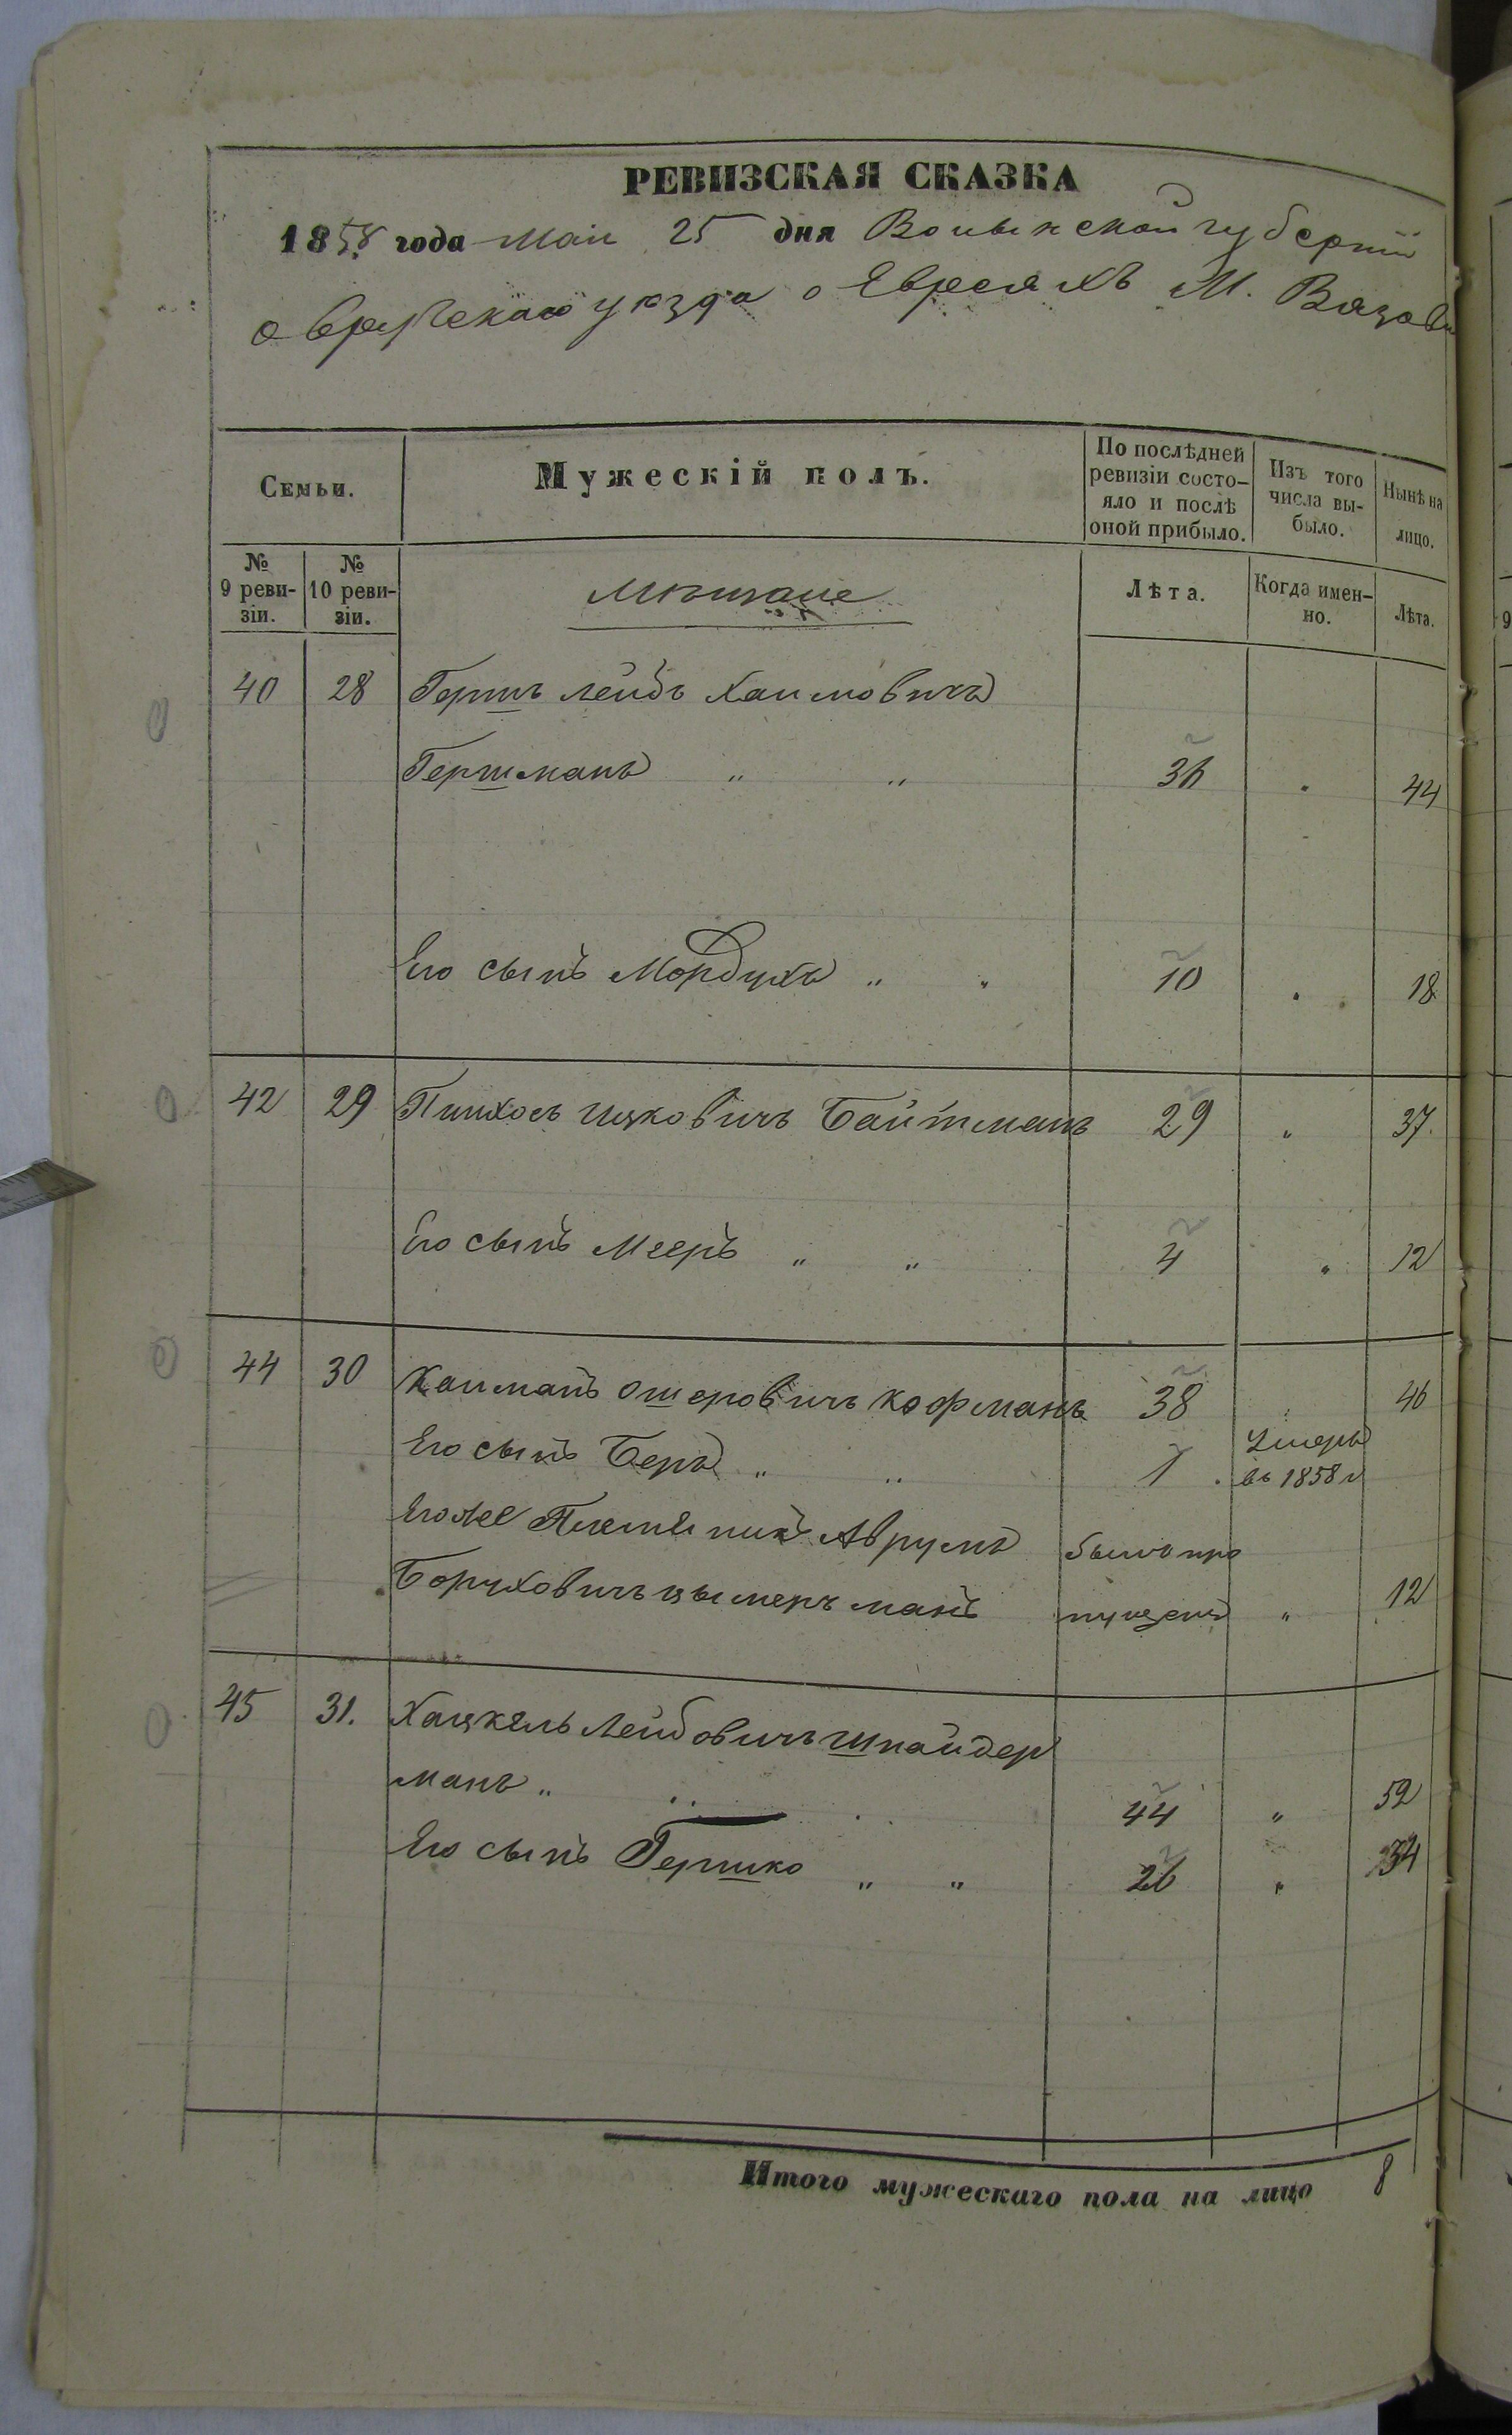 РЕВИЗСКАЯ СКАЗКА
1858 года Мая 25 дня Волынской губернии
Овручскаго уезда о Евреяхъ М. Вязовк
Семьи.
Мужескій полъ.
По послѣдней ревизіи состо-яло и послѣ оной прибыло.
Изъ того числа вы-было.
Нынѣ на лицо.
№ 9 реви-зіи.
№ 10 реви-зіи.
Мѣщане
Лѣта.
Когда имен-но.
Лѣта.
40 28 Гершъ Лейбъ Хаимовичъ
Гершманъ " " 36 . 44
Его сынъ Мордухъ " " 10 . 18
42 29 Пинхосъ Ицковичъ Байтманъ 29 " 37.
Его сынъ Мееръ " " 4 " 12
44 30 Калманъ Ошеровичъ Кофманъ 38 46
Его сынъ Беръ " " 1 . Умеръ въ 1858 г
Его же Племянникъ Аврумъ былъ про
Боруховичъ Цымерманъ пущенъ " 12
45 31. Хацкель Лейбовичъ Шнайдер
манъ " " 44 " 52
Его сынъ Гершко " " 26 " 34
Итого мужескаго пола на лицо 8